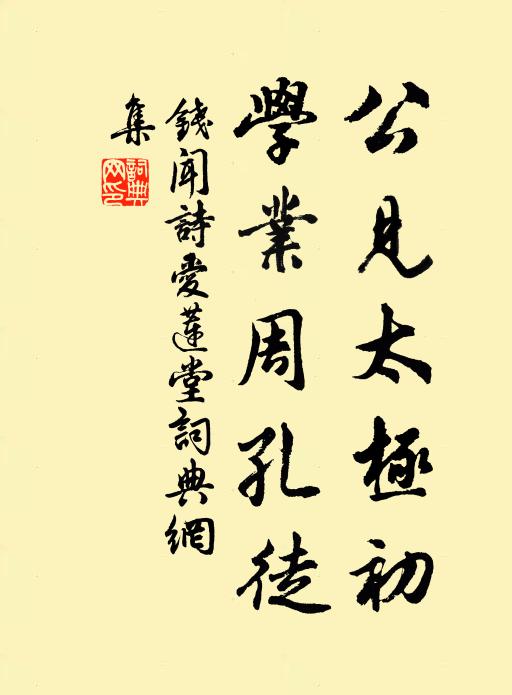 公見太極初
學業周孔徒
錢聞詩愛蓮堂詞典網
集
詞典
网印